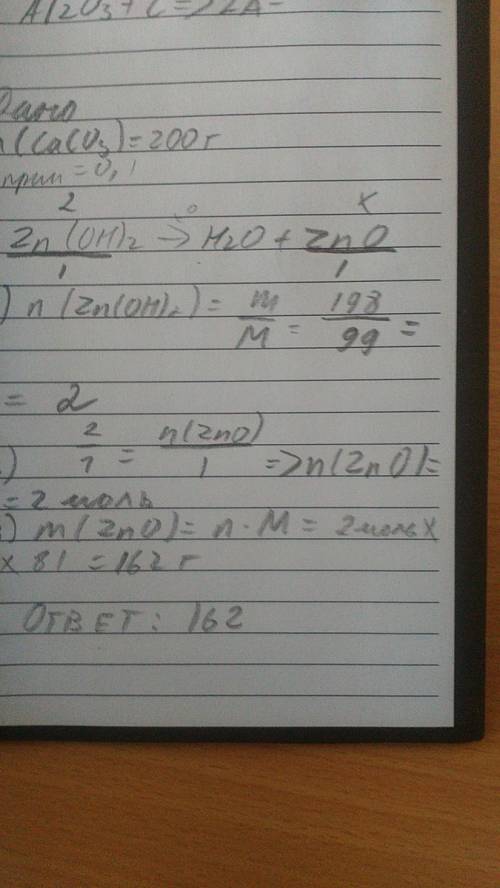 Al2O3 + C =>
Дано
(CaCO3) = 200 г
прим = 0,1
2 x
Zn(OH)2 -> H2O + ZnO
1 1
) n (Zn(OH)2) = m/M = 198/99 =
= 2
) 2/1 = n(ZnO)/1 => n(ZnO) =
= 2 моль
) m(ZnO) = n · M = 2моль х
х 81 = 162 г
ОТВЕТ: 162